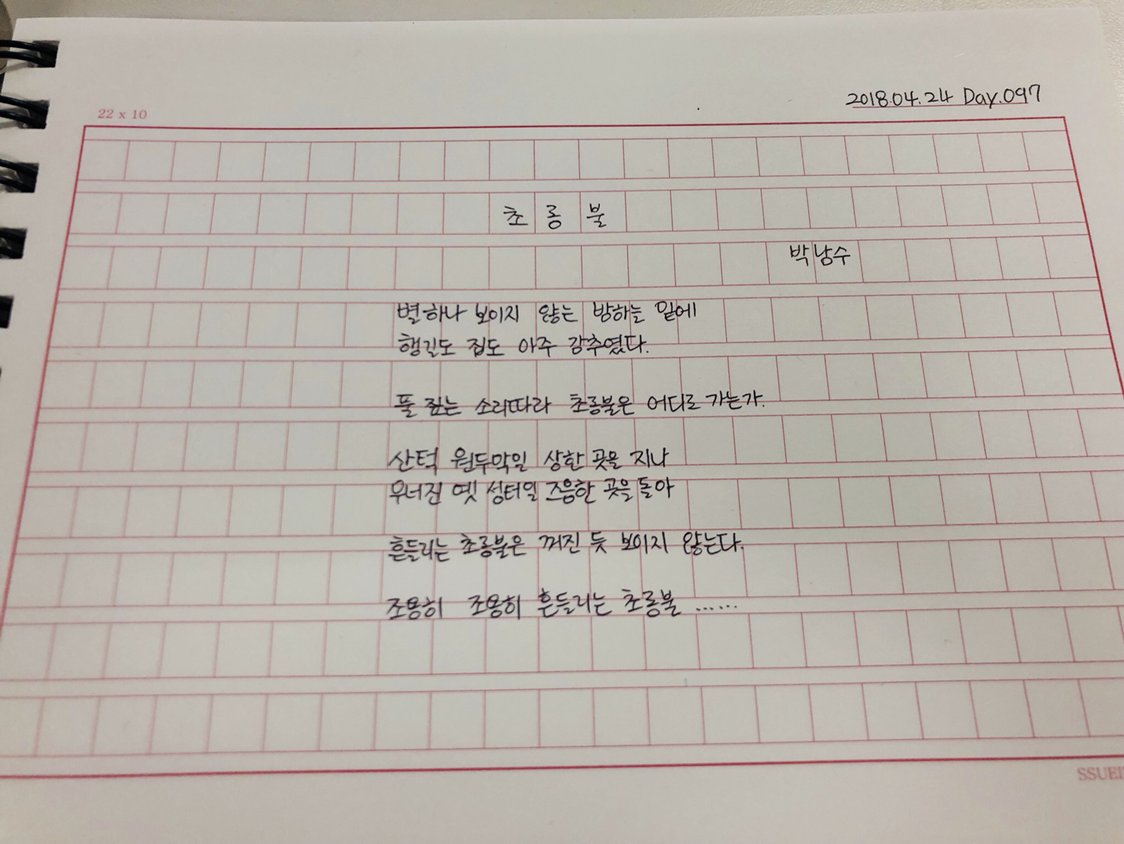 2018.04.24 Day.097
22 x 10
초롱불
박남수
별하나 보이지 않는 밤하늘 밑에
행길도 집도 아주 감추였다.
풀 짚는 소리따라 초롱불은 어디로 가는가.
산턱 원두막일 상한 곳을 지나
무너진 옛 성터일 즈음한 곳을 돌아
흔들리는 초롱불은 꺼진 듯 보이지 않는다.
조용히 조용히 흔들리는 초롱불 ......